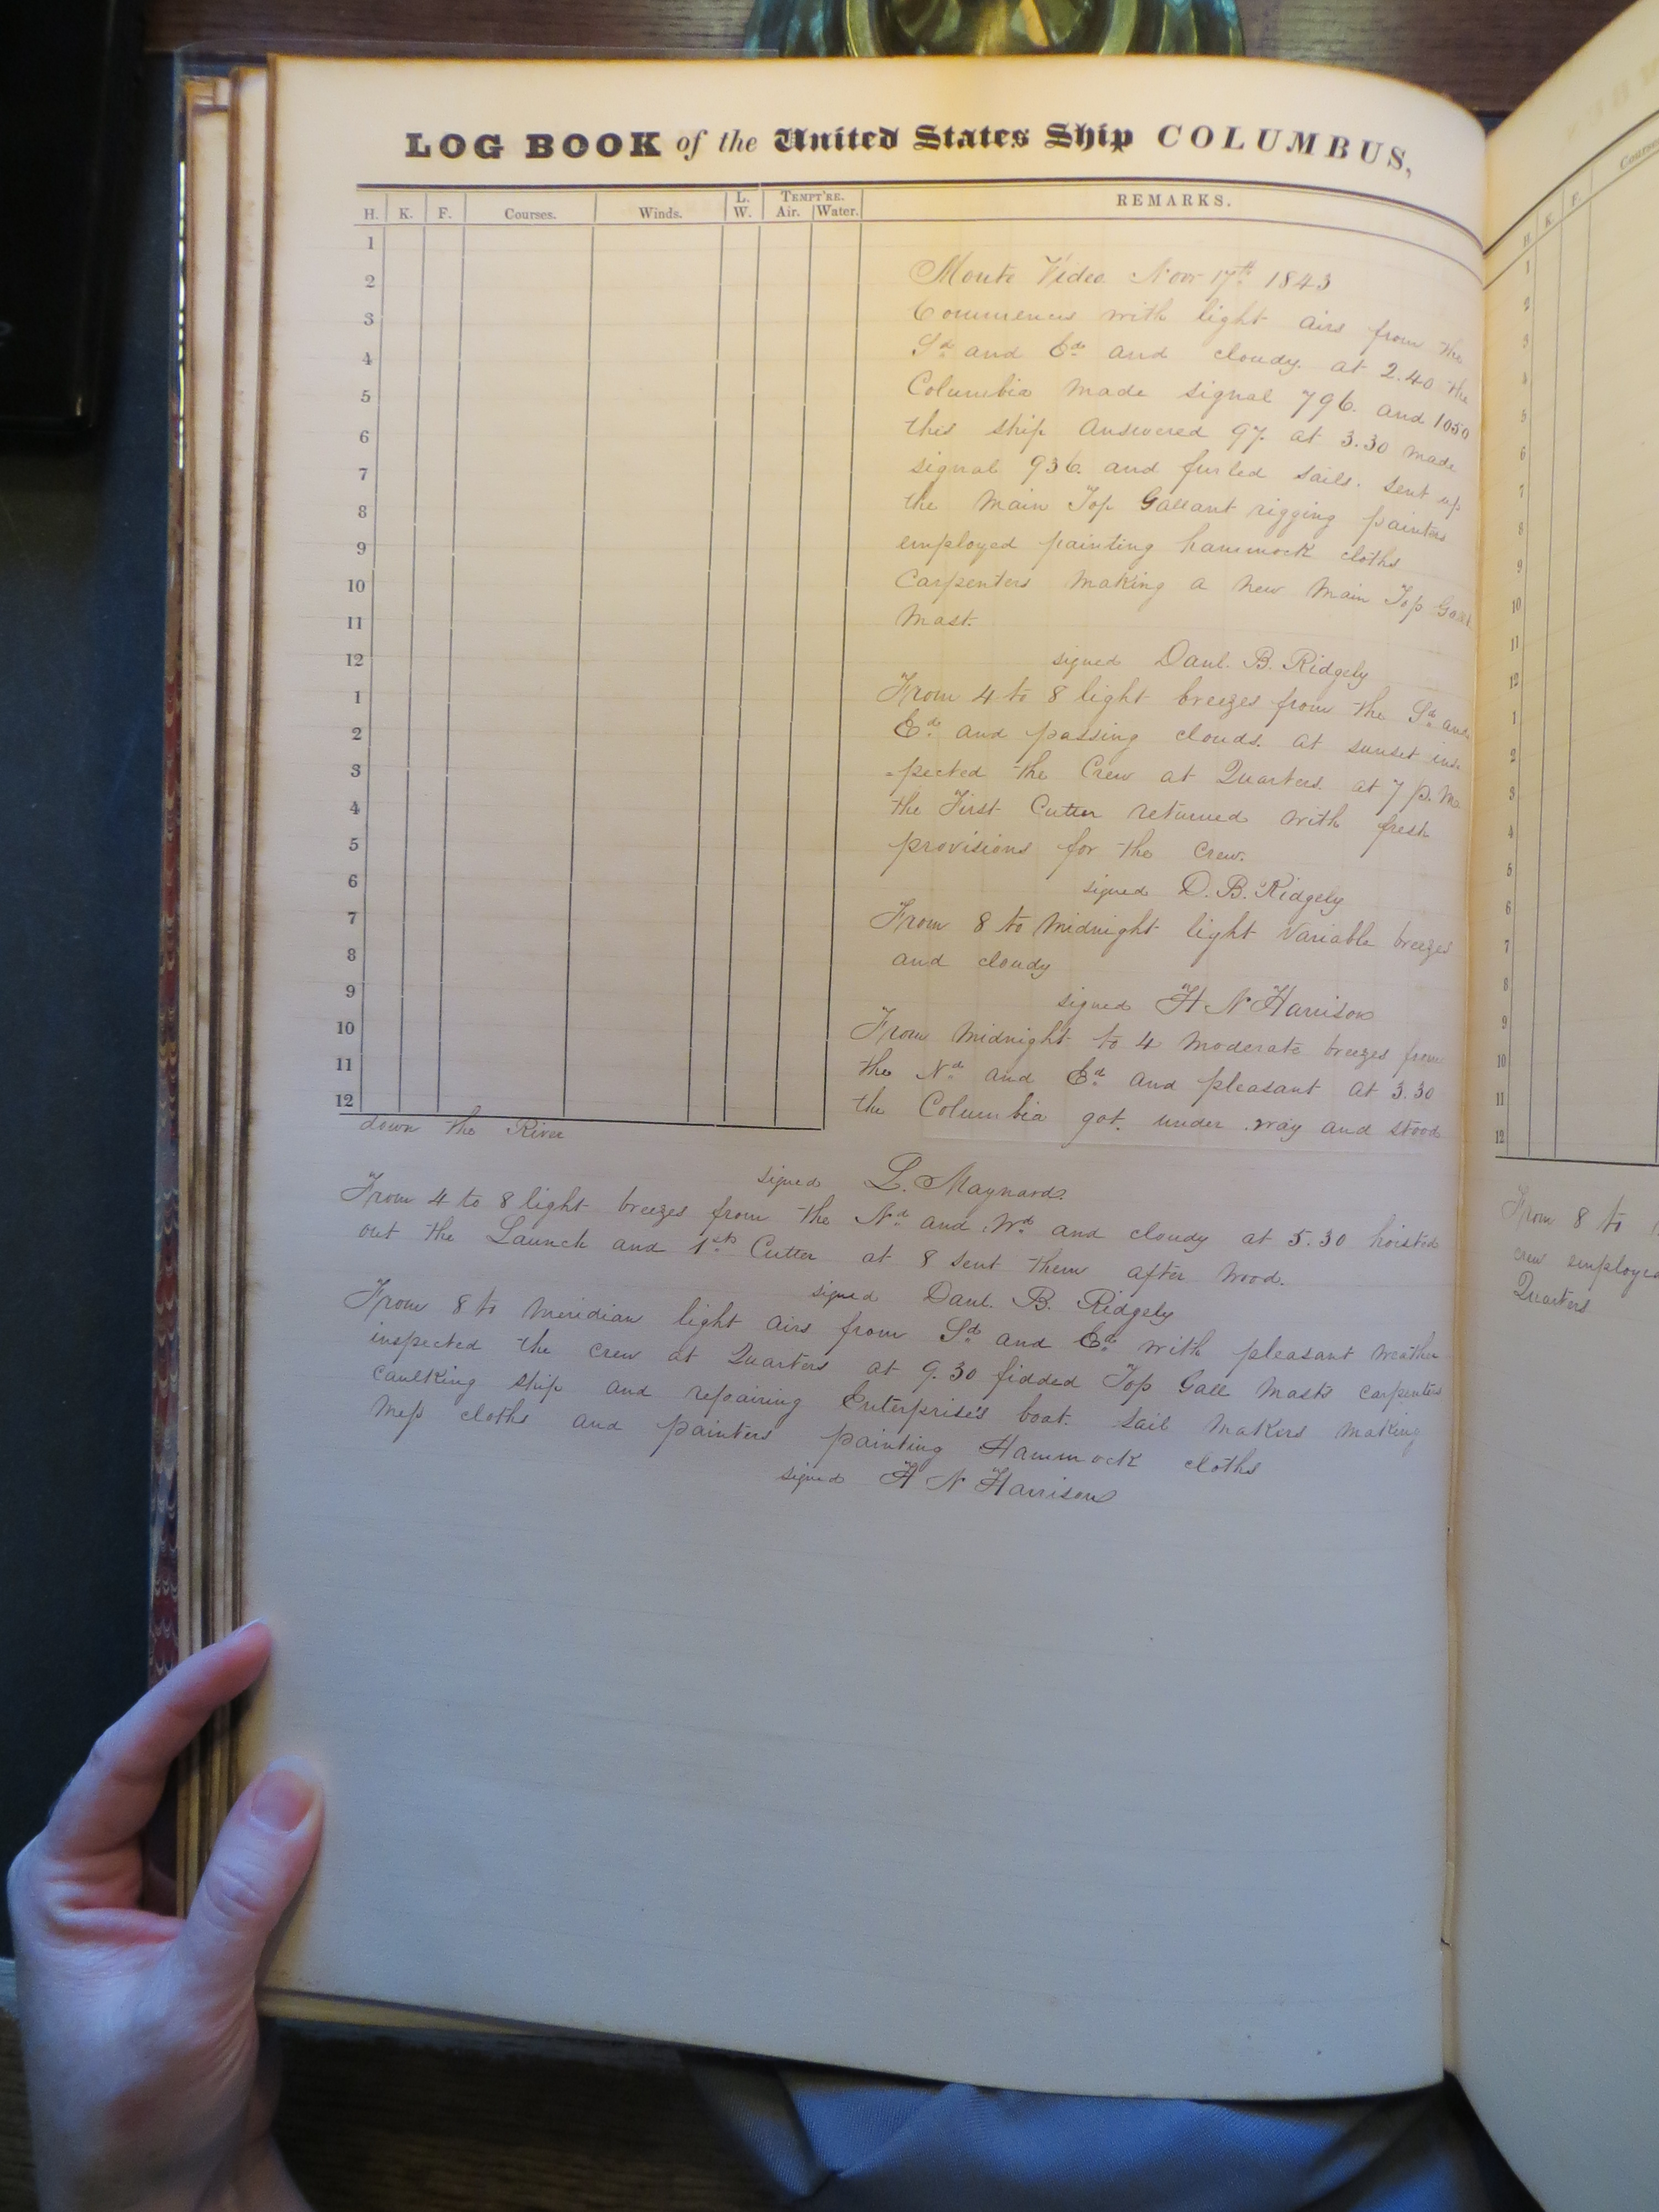 LOG BOOK of the United States Ship COLUMBUS,
H. K. F. Courses. Winds. L. W. TEMPT'RE. Air. Water. REMARKS.
1
2
3
4
5
6
7
8
9
10
11
12
1
2
3
4
5
6
7
8
9
10
11
12
Monte Video Novr 17th 1843
Commences with light airs from the
Sd and Ed and cloudy. at 2.40 the
Columbia made signal 796. and 1050
this ship answered 97. at 3.30 made
signal 936. and furled sails. sent up
the Main Top Gallant rigging painters
employed painting hammock cloths
Carpenters making a new Main Top Gallt
Mast.
signed Danl. B. Ridgely
From 4 to 8 light breezes from the Sd and
Ed and passing clouds. at sunset ins-
-pected the Crew at Quarters. at 7 p.m
the First Cutter returned with fresh
provisions for the crew.
signed D. B. Ridgely
From 8 to Midnight light Variable breezes
and cloudy
signed H N Harrison
From Midnight to 4 Moderate breezes from
the Nd and Ed and pleasant at 3.30
the Columbia got. under way and stood
down the River
signed L. Maynard.
From 4 to 8 light breezes from the Nd and Wd and cloudy at 5.30 hoisted
out the Launch and 1st Cutter at 8 sent them after wood.
signed Danl. B. Ridgely
From 8 to Meridian light airs from Sd and Ed with pleasant weather
inspected the crew at Quarters at 9.30 fidded Top Gall Masts carpenters
caulking ship and repairing Enterprise's boat. Sail Makers making
Mess cloths and painters painting Hammock cloths
signed H N Harrison
H K. F. Course
1
2
3
4
5
6
7
8
9
10
11
12
1
2
3
4
5
6
7
8
9
10
11
12
From 8 to
crew employed
Quarters